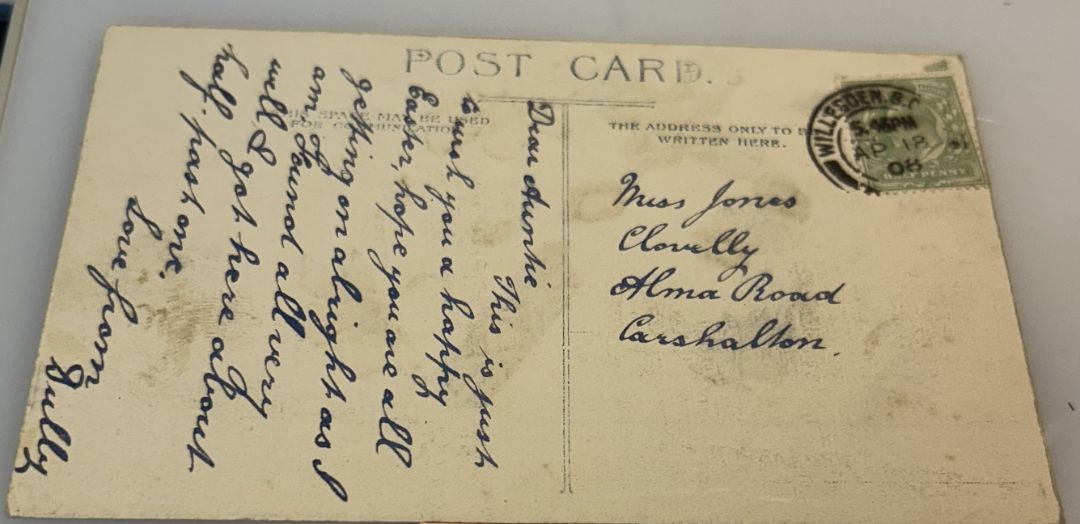 POST CARD.
SPACE MAY BE USED
FOR COMMUNICATION
THE ADDRESS ONLY TO B
WRITTEN HERE.
WILLESDEN. S.O
PM
AP 18
08
PENNY
Dear Auntie
This is just
to wish you a happy
Easter, hope you are all
getting on alright as I
am. I found all very
well I got here about
half past one.
Love from
Miss Jones
Clovelly
Alma Road
Carshalton.